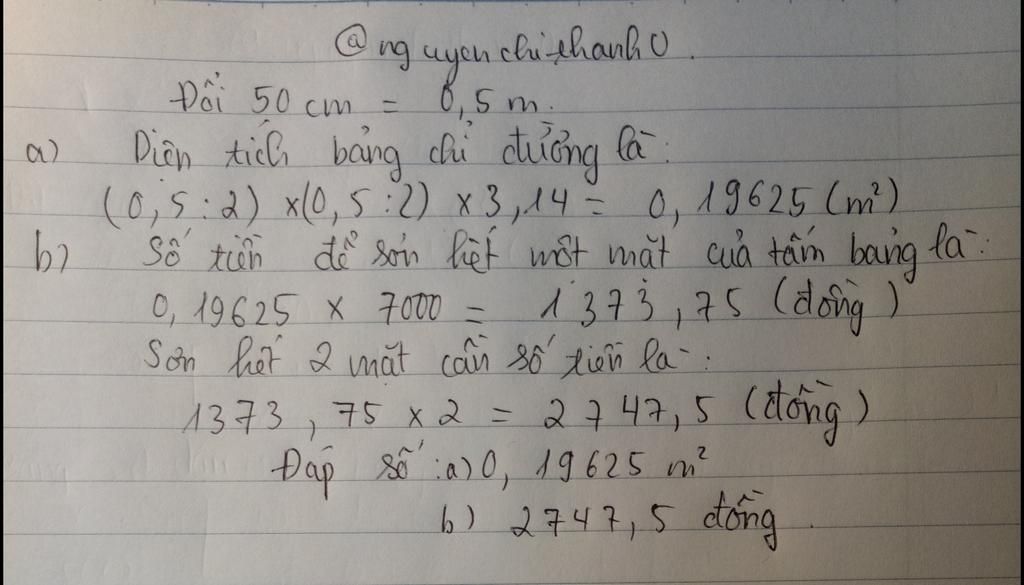 @nguyenchithanh0.
Đổi 50 cm = 0,5 m.
a) Diện tích bảng chỉ đường là:
(0,5:2) x(0,5:2) x3,14 = 0,19625 (m²)
b) Số tiền để sơn hết một mặt của tấm bảng là:
0,19625 x 7000 = 1373,75 (đồng)
Sơn hết 2 mặt cần số tiền là:
1373,75 x 2 = 2747,5 (đồng)
Đáp số :a)0,19625 m²
b) 2747,5 đồng.